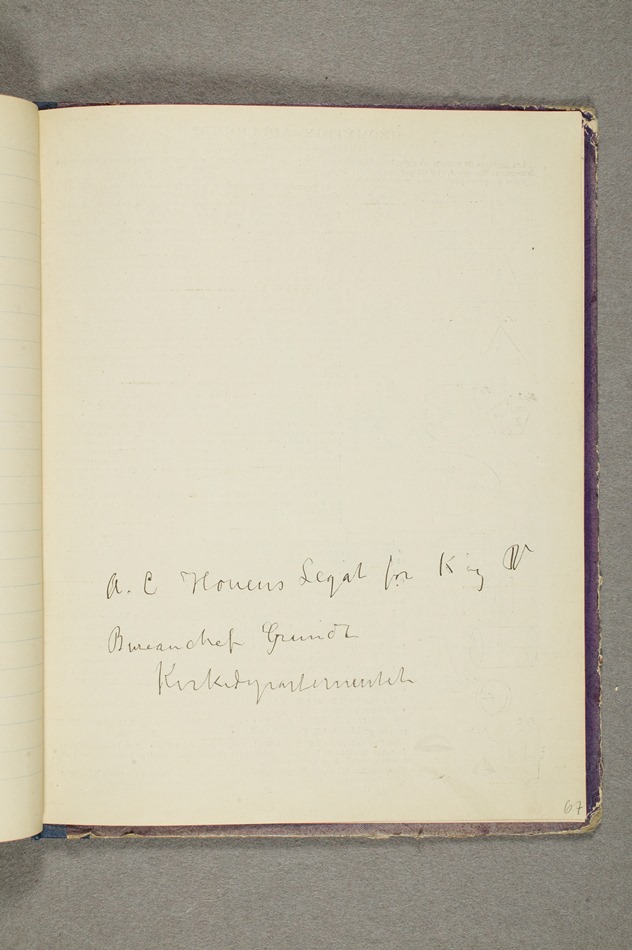 A. C Houens Legat for K og V
Bureauchef Grundt
Kirkedepartementet
67